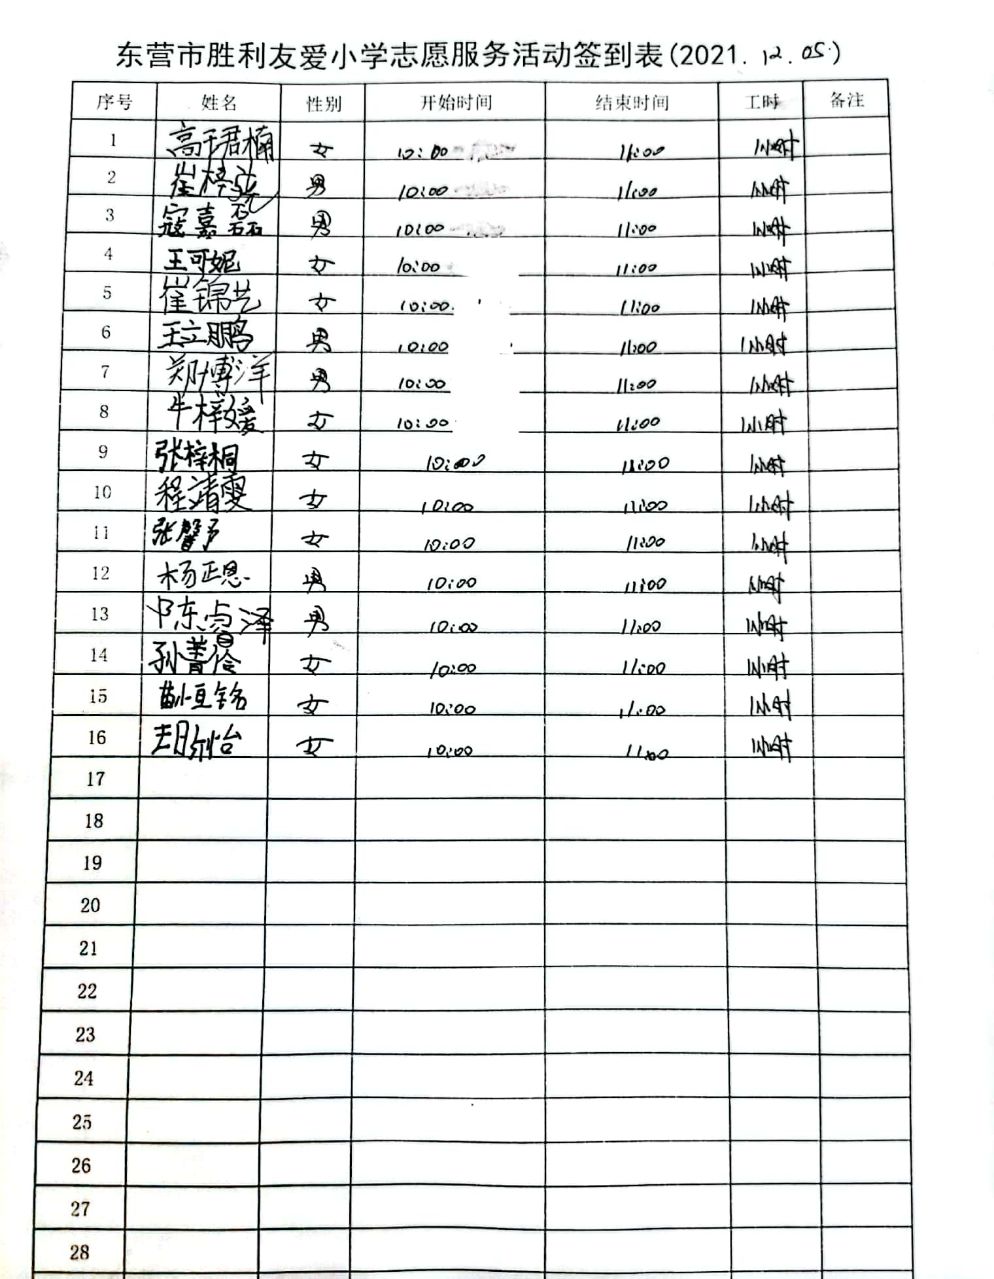 东营市胜利友爱小学志愿服务活动签到表(2021.12.05)
序号 姓名 性别 开始时间 结束时间 工时 备注
1 高于君楠 女 10:00 11:00 1小时
2 崔梓 男 10:00 11:00 1小时
3 寇嘉磊 男 10:00 11:00 1小时
4 王可妮 女 10:00 11:00 1小时
5 崔锦艺 女 10:00 11:00 1小时
6 王立鹏 男 10:00 11:00 1小时
7 郑博洋 男 10:00 11:00 1小时
8 牛梓媛 女 10:00 11:00 1小时
9 张梓桐 女 10:00 11:00 1小时
10 程靖雯 女 10:00 11:00 1小时
11 张馨予 女 10:00 11:00 1小时
12 杨正恩 男 10:00 11:00 1小时
13 泽 男 10:00 11:00 1小时
14 孙菁 女 10:00 11:00 1小时
15 苗恒铭 女 10:00 11:00 1小时
16 怡 女 10:00 11:00 1小时
17
18
19
20
21
22
23
24
25
26
27
28